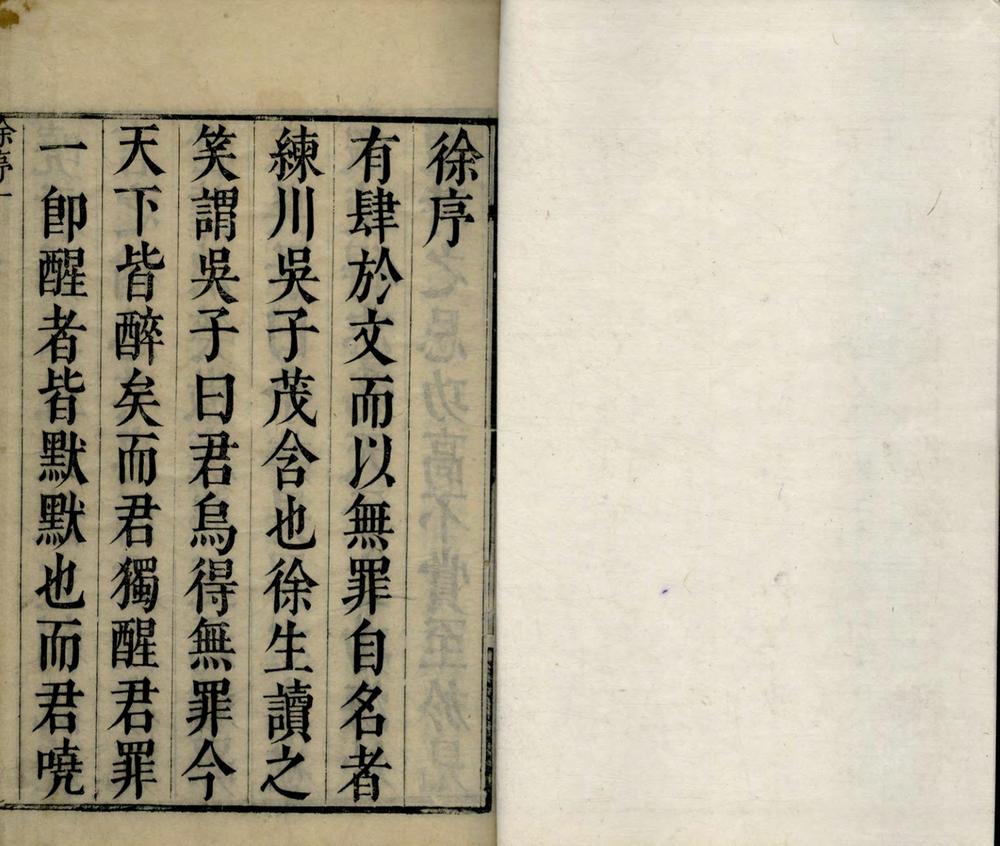 徐序
有肆於文而以無罪自名者
練川吳子茂含也徐生讀之
笑謂吳子曰君烏得無罪今
天下皆醉矣而君獨醒君罪
一卽醒者皆默默也而君嘵
徐序一